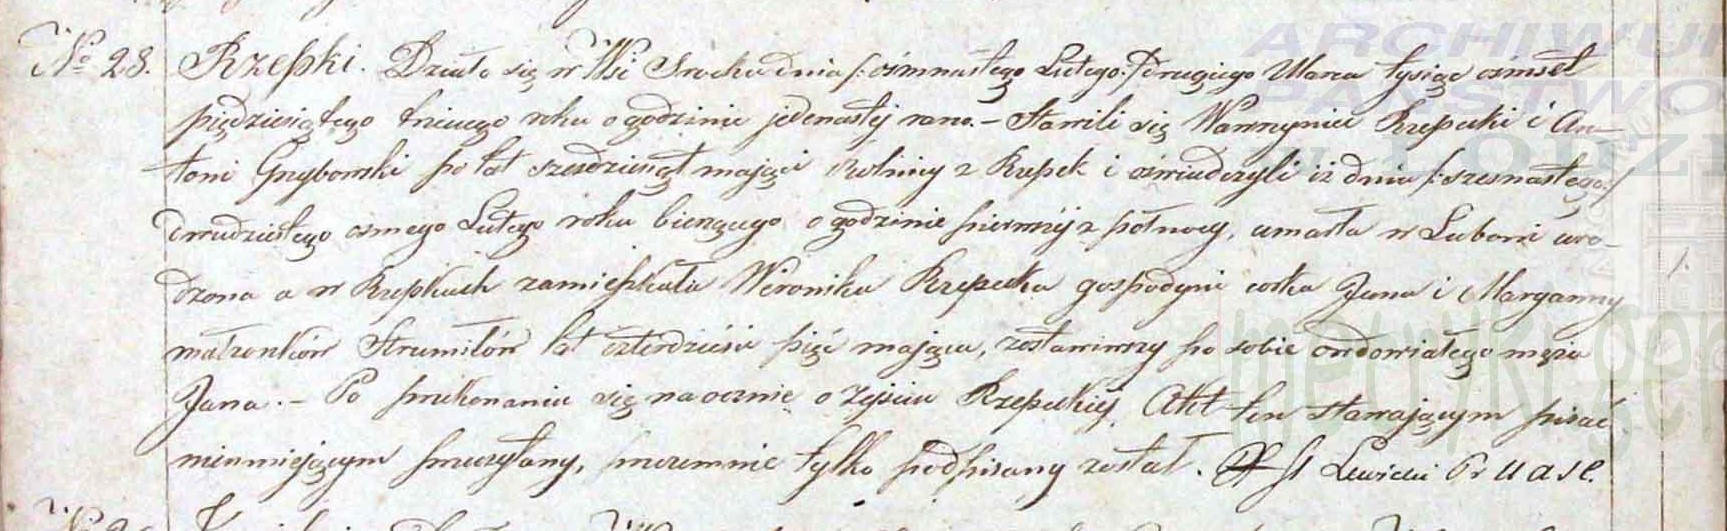 No 28. Rzepki. Działo się w Wsi Srocku dnia /: ośmnastego Lutego :/ drugiego Marca tysiąc ośmset
pięćdziesiątego trzeciego roku o godzinie jedenastej rano. – Stawili się Wawrzyniec Rzepecki i An-
toni Grzybowski po lat sześdziesiąt mający rolnicy z Rzepek i oświadczyli iż dnia /: szesnastego :/
dwudziestego osmego Lutego roku bieżącego o godzinie pierwszéj z północy, umarła w Luboni uro-
dzona a w Rzepkach zamieszkała Weronika Rzepecka gospodyni córka Jana i Maryanny
małżonków Strumiłów lat czterdzieści pięć mająca, zostawiwszy po sobie owdowiałego męża
Jana. – Po przekonaniu się naocznie o zejściu Rzepeckiéj Akt ten stawającym pisać
nieumiejącym przeczytany, przezemnie tylko podpisany został. Lewicki
ARCHIWUM
PAŃSTWO
W ŁODZI
metryki.gen